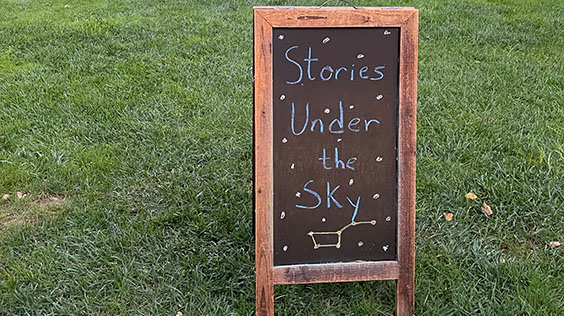 Stories
Under
the
Sky